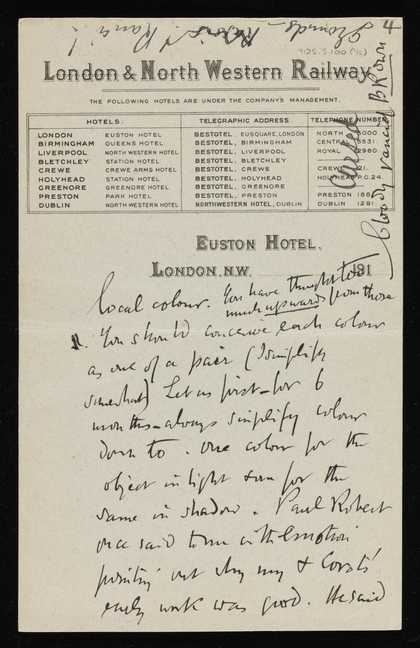 4
London & North Western Railway
THE FOLLOWING HOTELS ARE UNDER THE COMPANY'S MANAGEMENT.
HOTELS: TELEGRAPHIC ADDRESS TELEPHONE NUMBER
LONDON EUSTON HOTEL BESTOTEL, EUSQUARE, LONDON NORTH
BIRMINGHAM QUEENS HOTEL BESTOTEL, BIRMINGHAM
LIVERPOOL NORTH WESTERN HOTEL BESTOTEL, LIVERPOOL ROYAL
BLETCHLEY STATION HOTEL BESTOTEL, BLETCHLEY
CREWE CREWE ARMS HOTEL BESTOTEL, CREWE CREWE
HOLYHEAD STATION HOTEL BESTOTEL, HOLYHEAD HOLYHEAD P.O. 24
GREENORE GREENORE HOTEL BESTOTEL, GREENORE
PRESTON PARK HOTEL BESTOTEL, PRESTON PRESTON
DUBLIN NORTH WESTERN HOTEL NORTHWESTERN HOTEL, DUBLIN DUBLIN 1291
cursed
bloody Brown
EUSTON HOTEL.
LONDON. N.W. 191
local colour. You have thought to
much upwards from those
You should conceive each colour
as one of a pair (I simplify
somewhat) Let us first – for 6
months – always simplify colour
down to. one colour for the
object in light & one for the
same in shadow. Paul Robert
once said to me with emotion
pointing out why my & Corot's
early work was good. He said